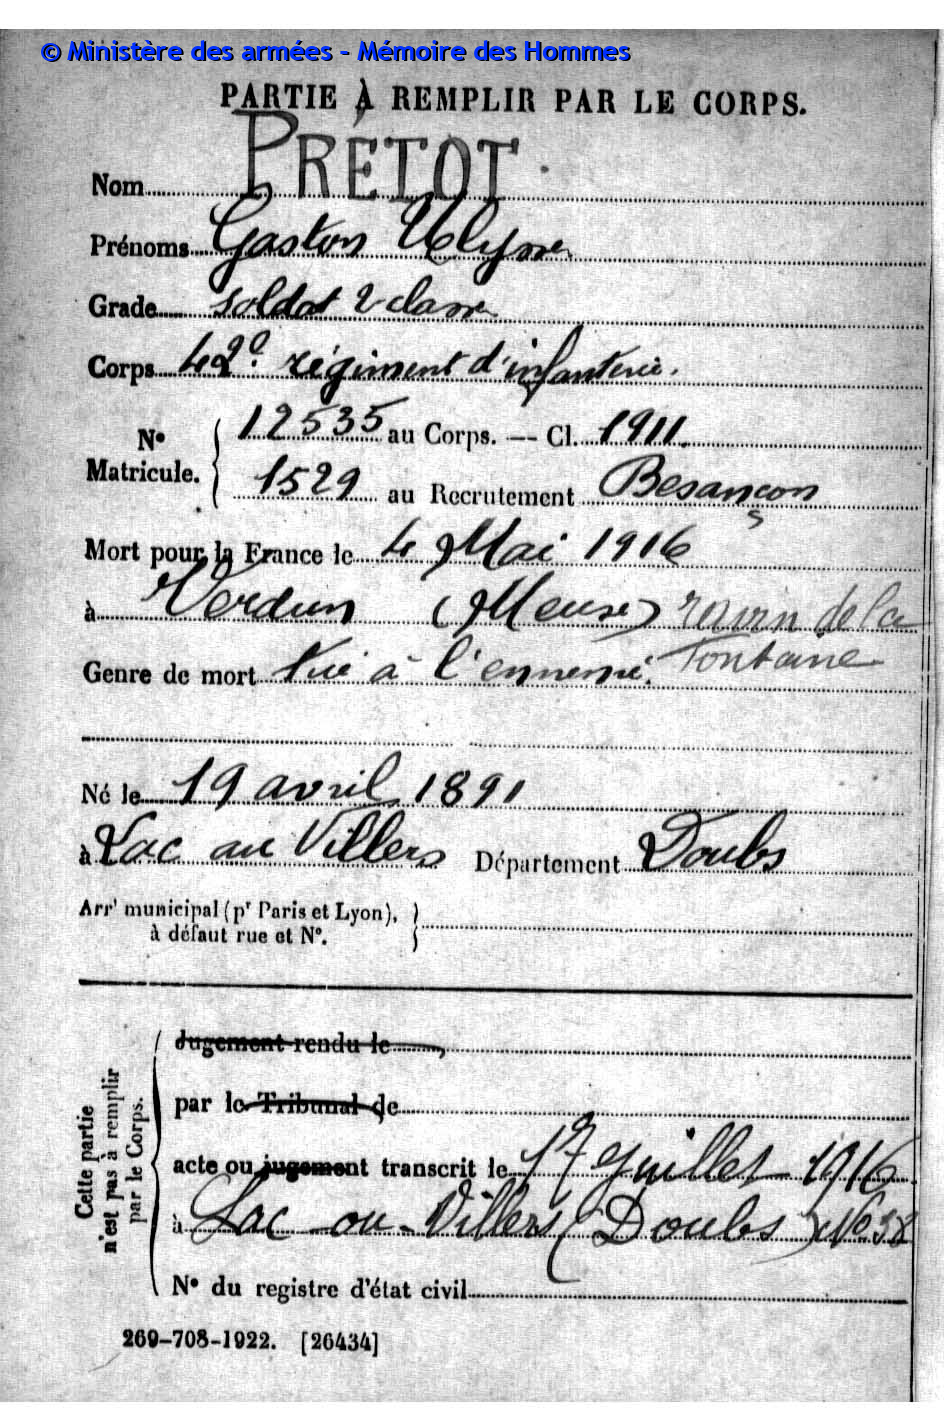 © Ministère des armées - Mémoire des Hommes
PARTIE À REMPLIR PAR LE CORPS.
Nom PRÉTOT
Prénoms Gaston Ulysse
Grade soldat 2 classe
Corps 42e régiment d'infanterie.
N° Matricule. { 12535 au Corps. — Cl. 1911.
1529 au Recrutement Besançon
Mort pour la France le 4 Mai 1916
à Verdun (Meuse) ravin de la
Genre de mort Tué à l'ennemi. Fontaine
Né le 19 avril 1891
à Lac au Villers Département Doubs
Arrt municipal (pr Paris et Lyon), }
à défaut rue et N°.
Cette partie n'est pas à remplir par le Corps.
Jugement rendu le
par le Tribunal de
acte ou jugement transcrit le 17 Juillet 1916
à Lac-ou-Villers (Doubs) No 38
N° du registre d'état civil
269-708-1922. [26434]